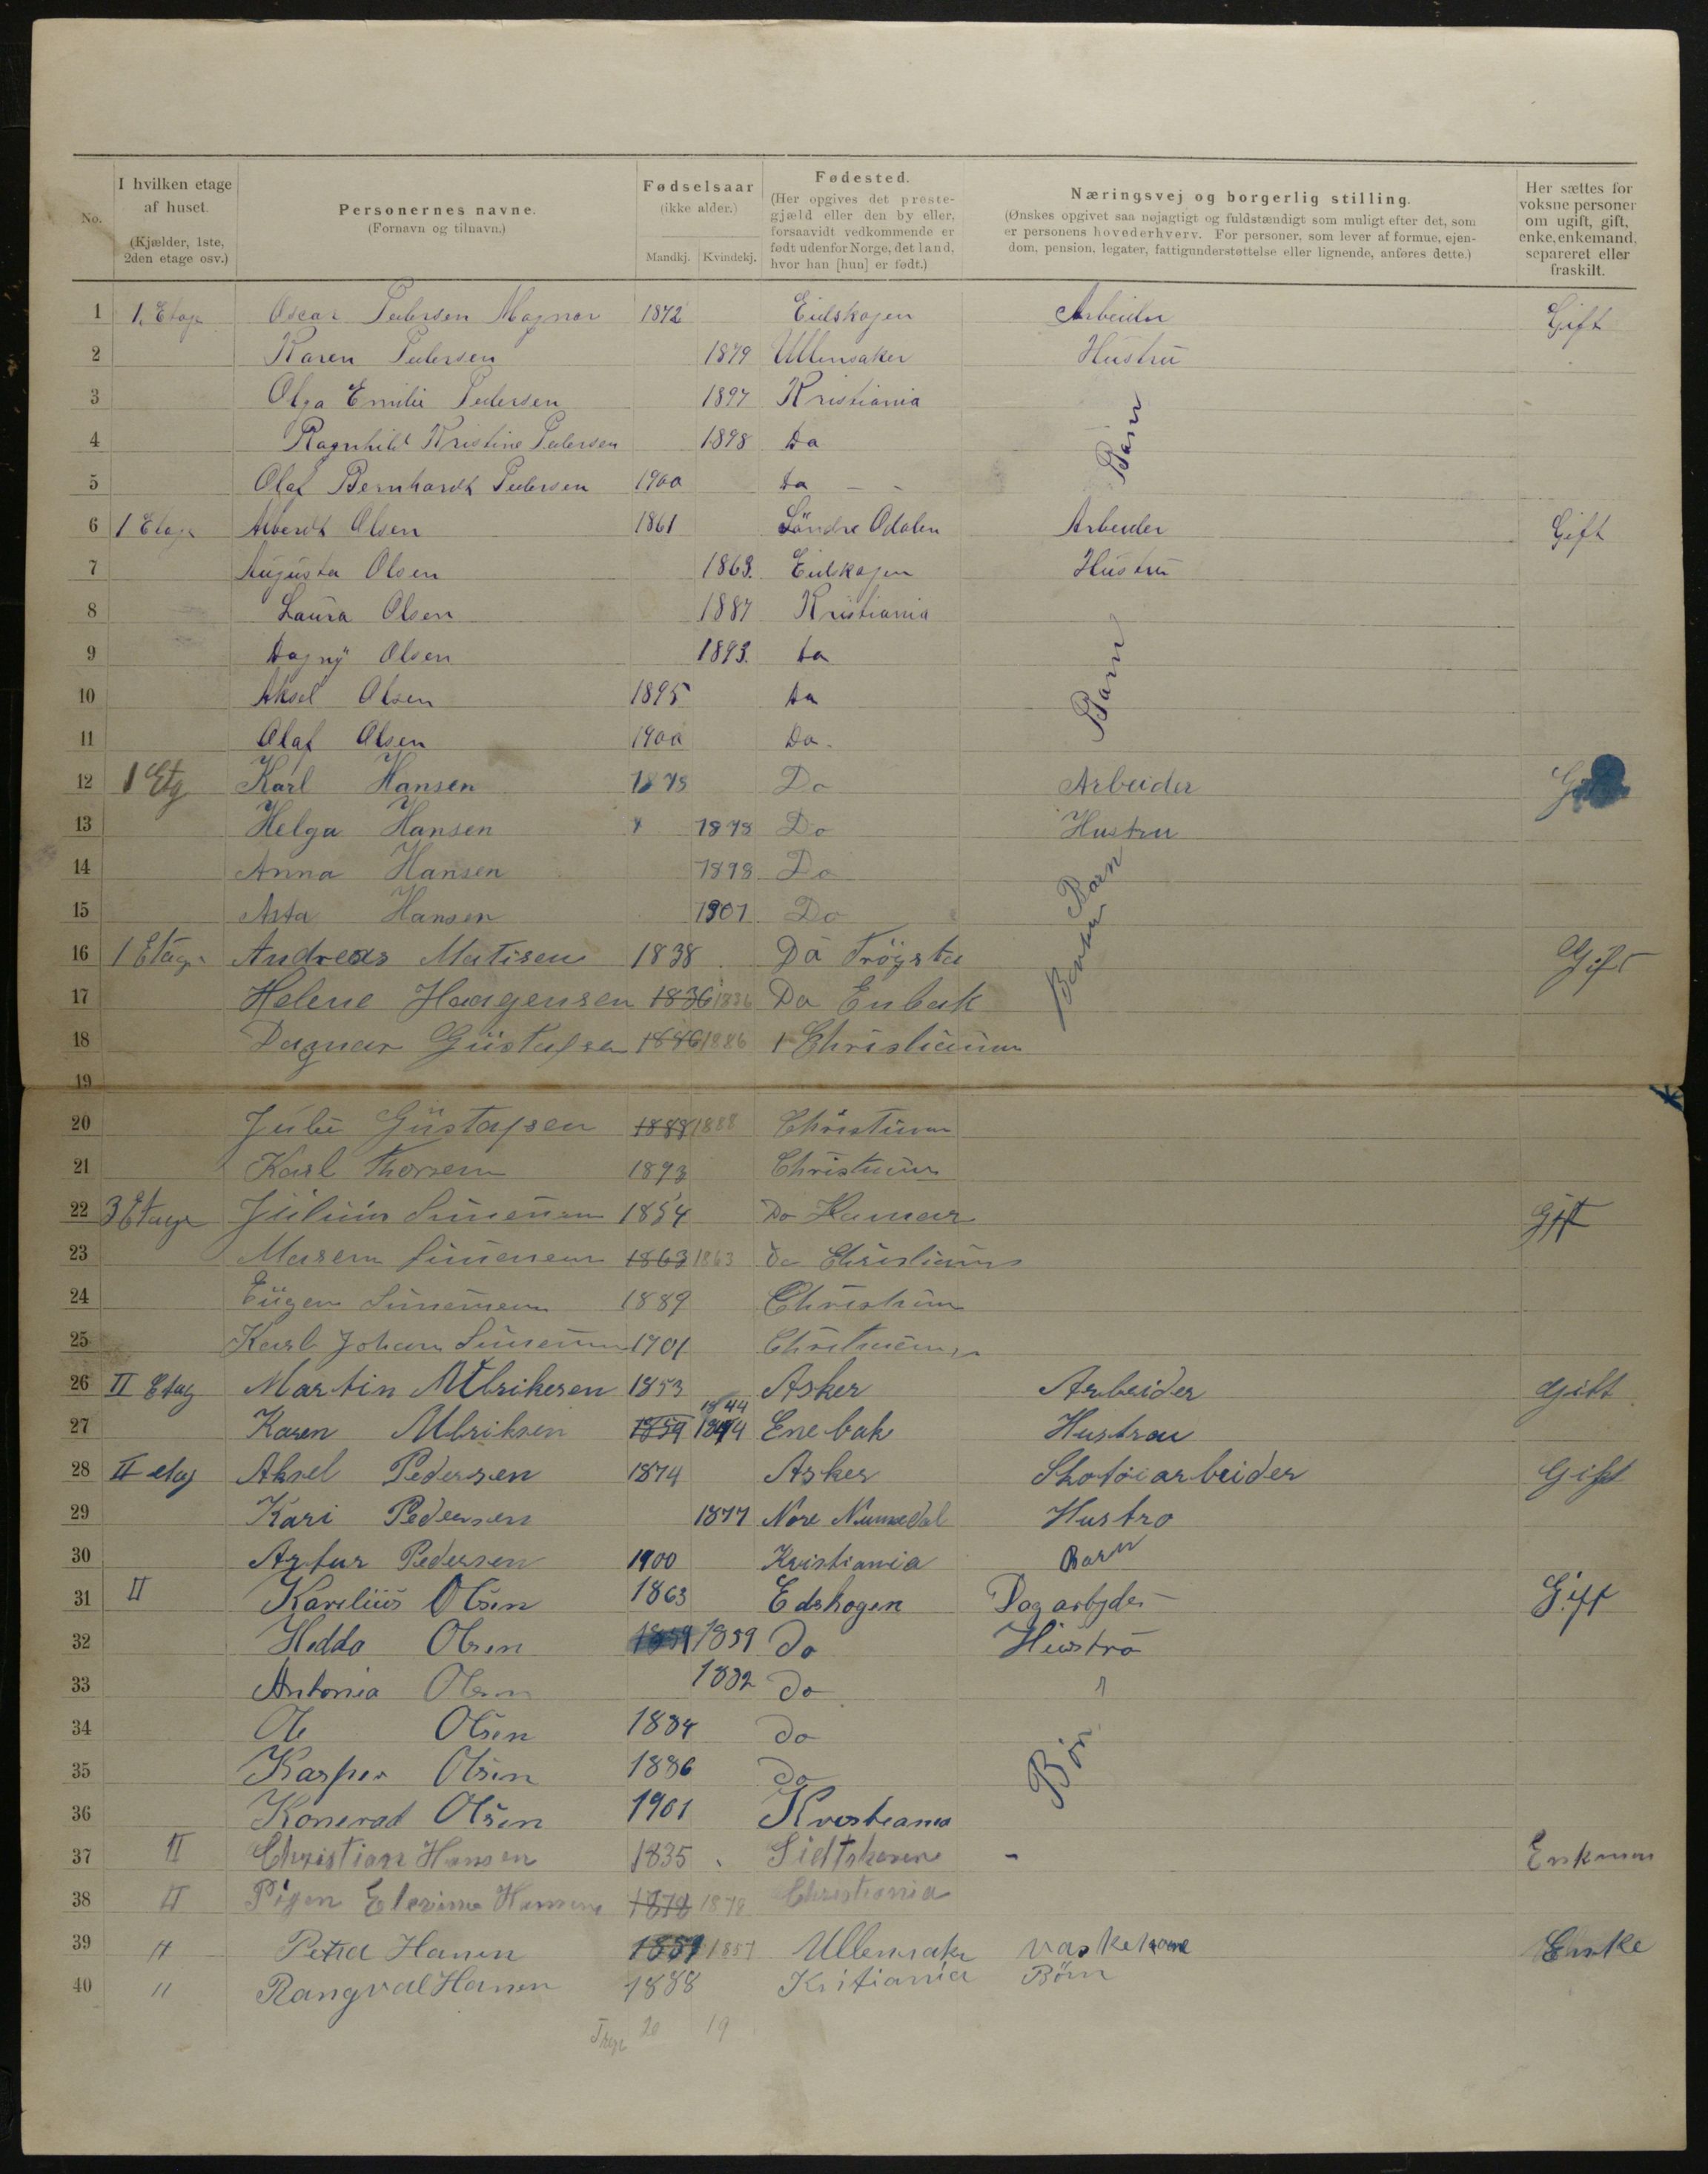 No.
I hvilken etage af huset. (Kjælder, 1ste, 2den etage osv.)
Personernes navne. (Fornavn og tilnavn.)
Fødselsaar (ikke alder.) Mandkj. Kvindekj.
Fødested. (Her opgives det prestegjæld eller den by eller, forsaavidt vedkommende er født udenfor Norge, det land, hvor han [hun] er født.)
Næringsvej og borgerlig stilling. (Ønskes opgivet saa nøjagtigt og fuldstændigt som muligt efter det, som er personens hovederhverv. For personer, som lever af formue, ejendom, pension, legater, fattigunderstøttelse eller lignende, anføres dette.)
Her sættes for voksne personer om ugift, gift, enke, enkemand, separeret eller fraskilt.
1 1. Etage Oscar Pedersen Magnor 1872 Eidskogen Arbeider Gift
2 Karen Pedersen 1879 Ullensaker Hustru
3 Olga Emilie Pedersen 1897 Kristiania
4 Ragnhild Kristine Pedersen 1898 Do Barn
5 Olaf Bernhardt Pedersen 1900 Do — -
6 1 Etage Albardt Olsen 1861 Söndre Odalen Arbeider Gift
7 Augusta Olsen 1863. Eidskogen Hustru
8 Laura Olsen 1887 Kristiania
9 Dagny Olsen 1893. Do
10 Aksel Olsen 1895 Do Barn
11 Olaf Olsen 1900 Do.
12 1 Etg Karl Hansen 1878 Do Arbeider
13 Helga Hansen 1878 Do Hustru
14 Anna Hansen 1898 Do Barn
15 Asta Hansen 1901 Do
16 1 Etage Andreas Matisen 1838 Do Tröysta Gift
17 Helene Haagensen 1836 1836 Do Enbak
18 Dagmar Güstafsen 1886 1886 Christiania
19
20 Julie Güstafsen 1888 1888 Christiania
21 Karl Thorsen 1893 Christiania
22 3 Etage Julius Simensen 1854 Do Hamar Gift
23 Maren Simensen 1863 1863 Do Christiania
24 Eugen Simensen 1889 Christiania
25 Karl Johan Simensen 1901 Christiania
26 II Etag Martin Ulriksen 1853 Asker Arbeider Gift
1844
27 Karen Ulriksen 1859 1844 Enebak Hustrau
28 II etag Aksel Pedersen 1874 Asker Skotöiarbeider Gift
29 Kari Pedersen 1877 Nore Numedal Hustro
30 Artur Pedersen 1900 Kristiania Barn
31 II Karelius Olsen 1863 Edskogen Dagarbyder Gift
32 Hedda Olsen 1859 1859 Do Hustro
33 Antonia Olsen 1882 Do "
34 Ole Olsen 1884 Do
35 Kasper Olsen 1886 Do Börn
36 Konerad Olsen 1901 Kristiania
37 II Christian Hansen 1835 - Enkman
38 II Pigen Hansen 1878 1878 Christiania
39 II Petra Hansen 1851 1851 Ullensaker vaskekone Enke
40 " Rangval Hansen 1888 Kritiania Börn
20 19